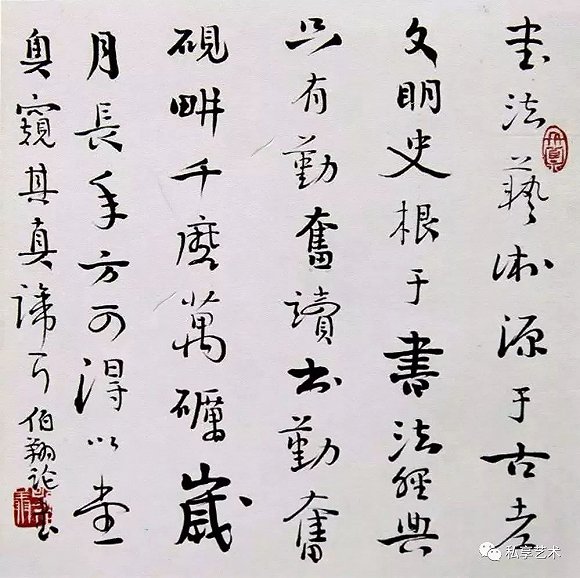 书法藝術源于古老
文明史根于書法經典
只有勤奮讀书勤奮
硯畊千磨萬礪歲
月長年方可得以堂
奥窺其真諦耳
伯翔論书
私享艺术